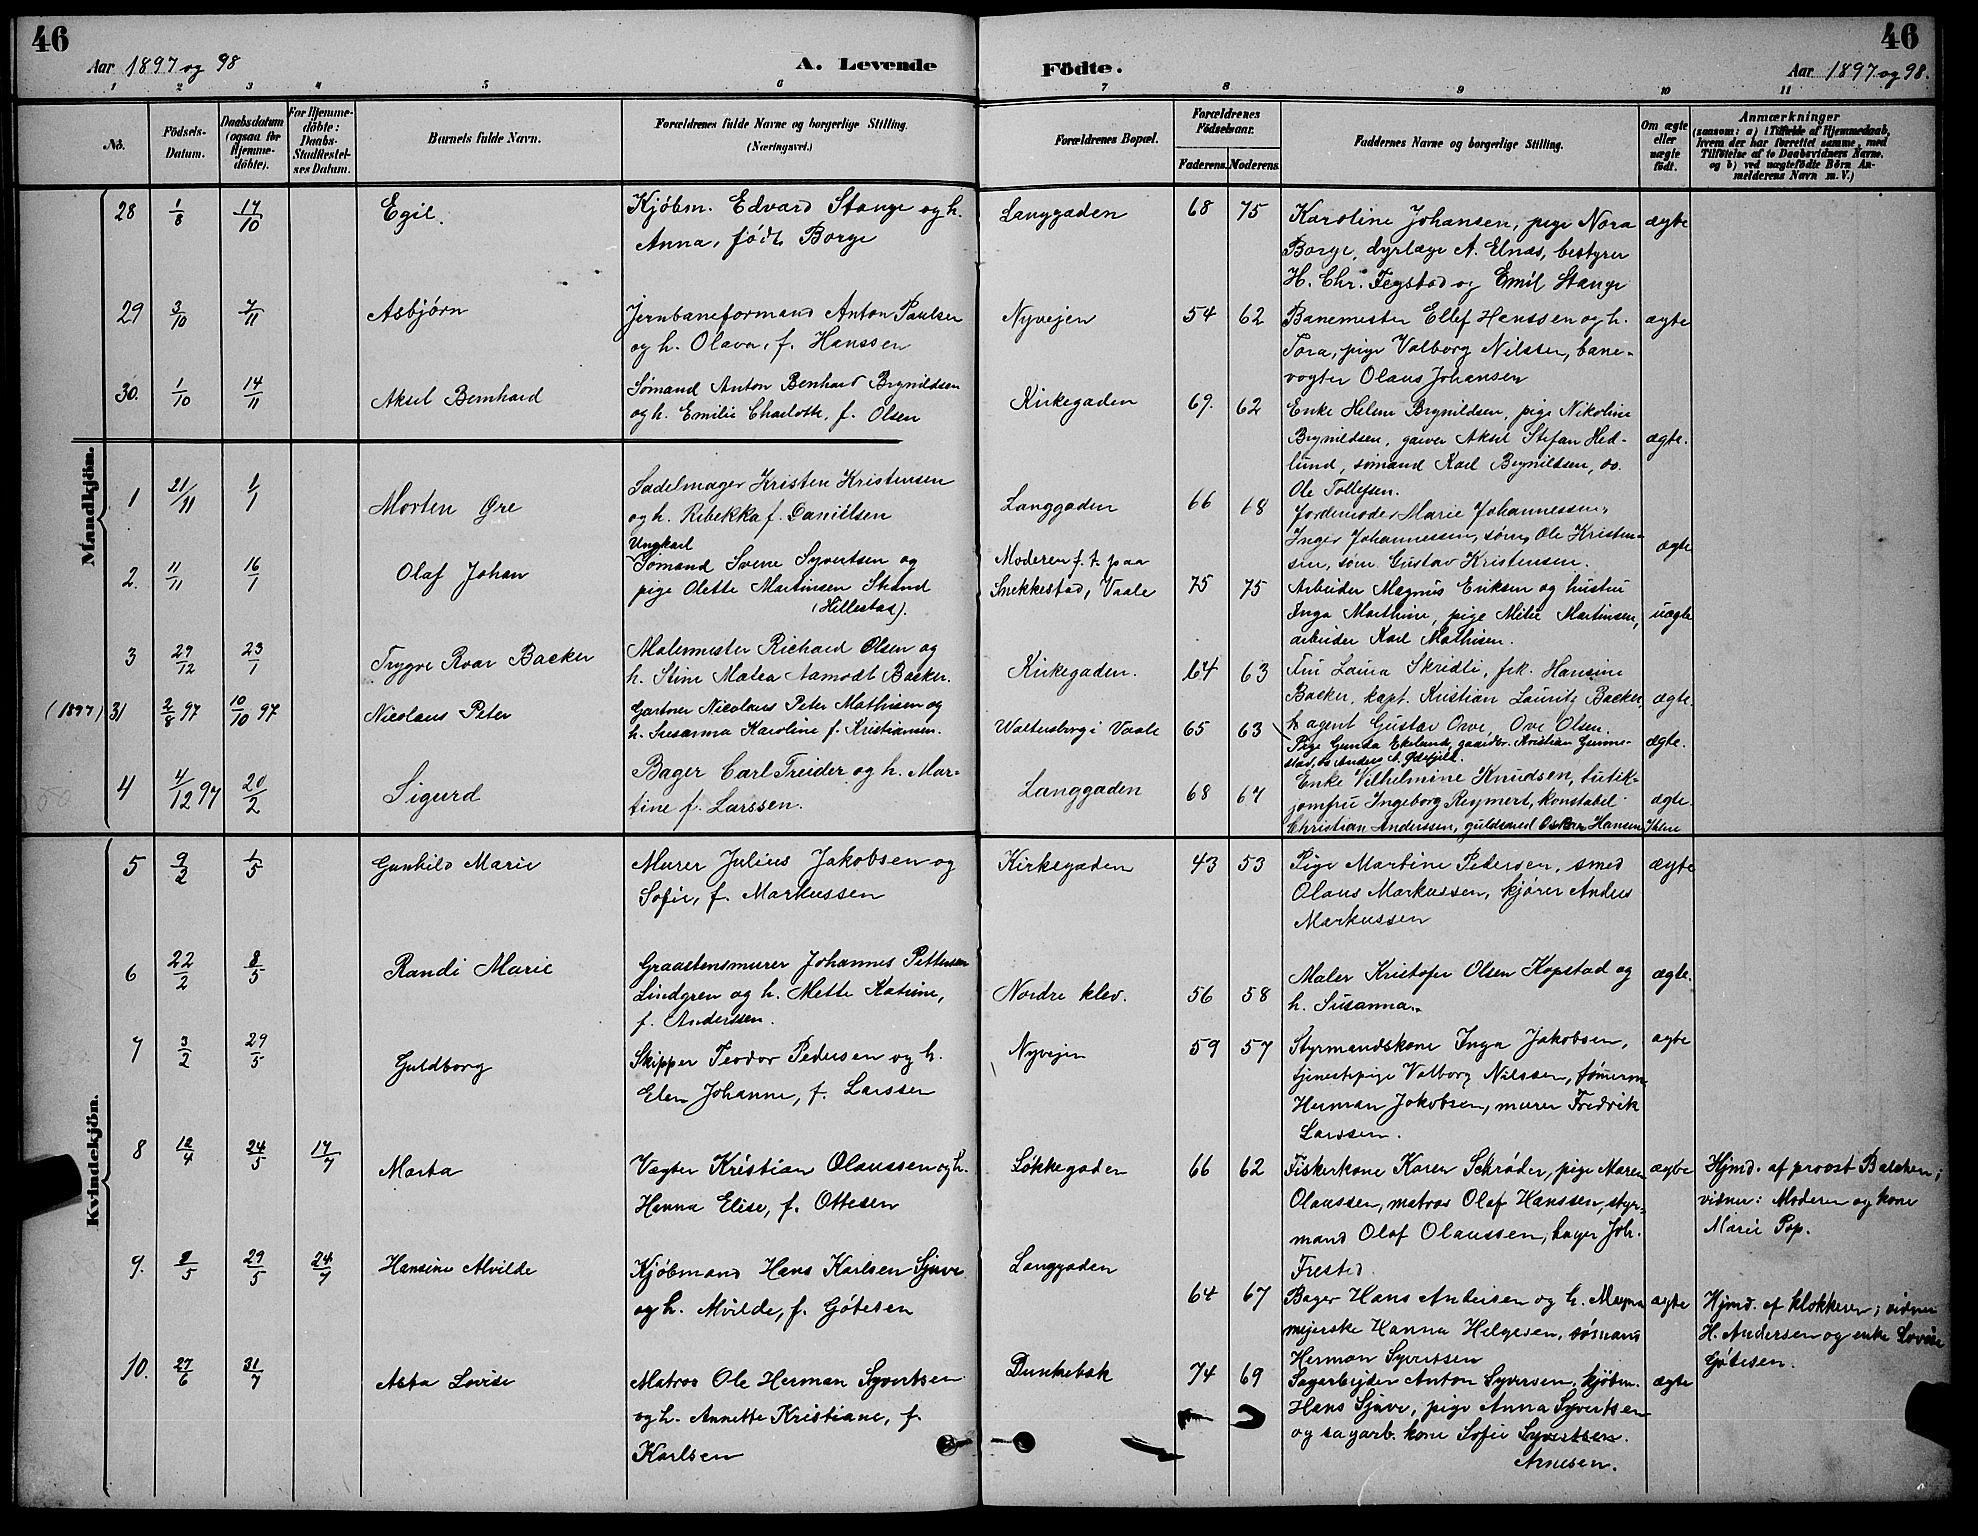 46
Aar 1897 og 98
A. Levende
Födte.
Aar 1897 og 98.
46
1 2 3 4 5 6 7 8 9 10 11
No.
Födsels-Datum.
Daabsdatum (ogsaa for Hjemmedöbte).
For Hjemmedöbte: Daabs-Stadfæstelses Datum.
Barnets fulde Navn.
Forældrenes fulde Navne og borgerlige Stilling. (Næringsvei.)
Forældrenes Bopæl.
Forældrenes Födselsaar.
Faderens. Moderens.
Faddernes Navne og borgerlige Stilling.
Om ægte eller uægte födt.
Anmærkninger
(saasom: a) i Tilfælde af Hjemmedaab,
hvem der har forrettet samme, med
Tilföielse af to Daabsvidners Navne,
og b) ved uægtefödte Börn An-
melderens Navn m. V.)
Mandkjön.
28 1/8 17/10 Egil.
Kjøbm. Edvard Stange og h.
Anna, født Borge
Langgaden 68 75
Karoline Johansen, pige Nora
Borge, dyrlæge A. Elnæs, bestyrer
H. Chr. Fegstad og Emil Stange
ægte
29 3/10 7/11 Asbjørn
Jernbaneformand Anton Paulsen
og h. Olava, f. Hanssen
Nyvejen 54 62
Banemester Ellef Hanssen og h.
Tora, pige Valborg Nilssen, bane-
vogter Olaus Johansen
ægte
30. 1/10 14/11 Aksel Bernhard
Sømand Anton Benhard Brynildsen
og h. Emilie Charloth, f. Olsen
Kirkegaden 69. 62
Enke Helene Brynildsen, pige Nikoline
Brynildsen, garver Aksel Stefan Hed-
lund, sømand Karl Brynildsen, do.
Ole Tollefsen.
ægte.
1 21/11 1/1 Morten Øre
Sadelmager Kristen Kristensen
og h. Ribekka f. Danielsen
Langgaden 66 68
Jordemoder Marie Johannessen,
Inger Johannessen, søm. Ole Kristen-
sen, søm. Gustav Kristensen.
ægte
2. 11/11 16/1 Olaf Johan
Ungkarl
Sømand Svene Syvertsen og
pige Olette Martinsen Strand
(Hillestad).
Moderen f. t. paa
Snekkestad, Vaale 75 75
Arbeider Magnus Eriksen og hustru
Inga Marthine, pige Milie Martinsen,
arbeider Karl Mathisen.
uægte
3 29/12 23/1 Trygve Roar Backer
Malermester Richard Olsen og
h. Stine Matea Aamodt Backer.
Kirkegaden. 64 63
Fru Laura Skridli, frk. Hansine
Backer, kapt. Kristian Lauritz Backer
h agent Gustav Orve, Ove Olsen.
ægte.
(1897) 31 2/8 97 10/10 97 Nicolaus Peter
Gartner Nicolaus Peter Mathisen og
h. Susanna Karoline f. Kristiansen.
Waltersborg i Vaale 65 63
Pige Gunda Ekelund, gaardbr. Kristian Gunne-
stad, do Anders A.
ægte.
4 4/12 97 20/2 Sigurd
Bager Carl Treider og h. Mar-
tine f. Larssen.
Langgaden 68 67
Enke Vilhelmine Knudsen, butik-
jomfru Ingeborg Reymert, konstabel
Christian Anderssen, guldsmed Oskar Hansen Ihlen
ægte.
Kvindekjön.
5 9/2 1/5 Gunhild Marie
Murer Julius Jakobsen og
Sofie, f. Markussen
Kirkegaden 43 53
Pige Martine Pedersen, smed
Olaus Markussen, kjører Anders
Markussen
ægte
6 22/2 8/5 Randi Marie
Graastensmurer Johannes Pettersen
Lindgren og h. Mette Katrine,
f. Anderssen.
Nordre klev. 56 58
Maler Kristofer Olsen Kopstad og
h. Susanna.
ægte.
7 3/2 29/5 Guldborg
Skipper Teodor Pedersen og h.
Elen Johanne, f. Larssen
Nyvejen 59 57
Styrmandskone Inga Jakobsen,
tjenestepige Valborg Nilssen, tømerm.
Herman Jakobsen, murer Fredrik
Larssen.
ægte
8 12/4 24/5 17/7 Marta
Vægter Kristian Olaussen og h.
Hanna Elise, f. Ottesen
Løkkegaden 66 62
Fiskerkone Karen Schrøder, pige Maren
Olaussen, matros Olaf Hanssen, styr-
mand Olaf Olaussen, bager Joh.
Frested.
ægte
Hjmd. af provst Balchen;
vidner: Moderen og kone
Marie Pop.
9. 8/5 29/5 24/7 Hansine Alvilde
Kjøbmand Hans Karlsen Sjuve
og h. Alvilde, f. Gøtesen
Langgaden 64 67
Bager Hans Andersen og h. Magna
mejerske Hanna Helgesen, sømand
Herman Syvertsen
ægte
Hjmd. af klokkeren; vidner
H. Andersen og enke Lovise
Gøtesen.
10. 27/6 31/7 Asta Lovise
Matros Ole Herman Syvertsen
og h. Annette Kristiane, f.
Karlsen
Dunkebæk 74 69
Sagarbejder Anton Syversen, kjøbm.
Hans Sjuve, pige Anna Syvertsen
og sagarb. kone Sofie Syvertsen.
Arnesen.
ægte